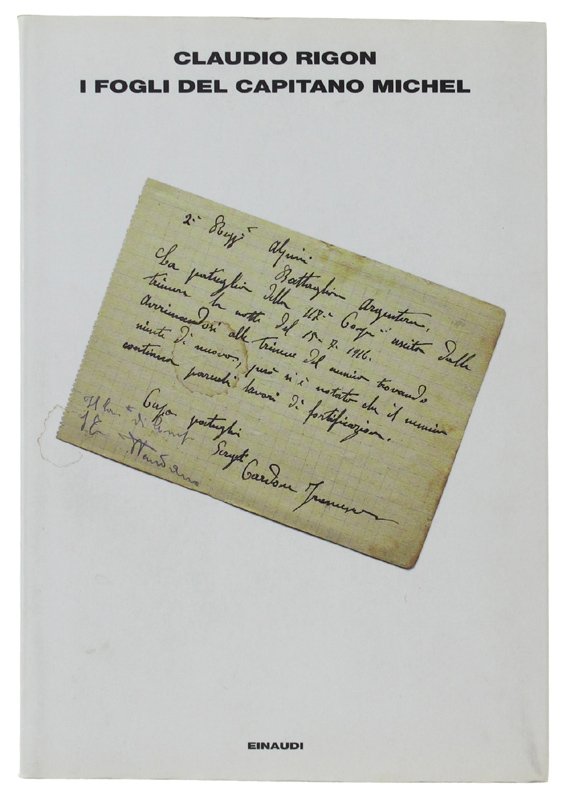 CLAUDIO RIGON
I FOGLI DEL CAPITANO MICHEL
2° Regg° Alpini
Battaglione Argentera.
La pattuglia della 117ª Comp. uscita dalla
trincea la notte del 15-7-1916.
Avvicinandosi alle trincee del nemico trovando
niente di nuovo, però si è notato che il nemico
continua parecchi lavori di fortificazione.
Capo pattuglia
Sergte
Cardone
Il di
EINAUDI